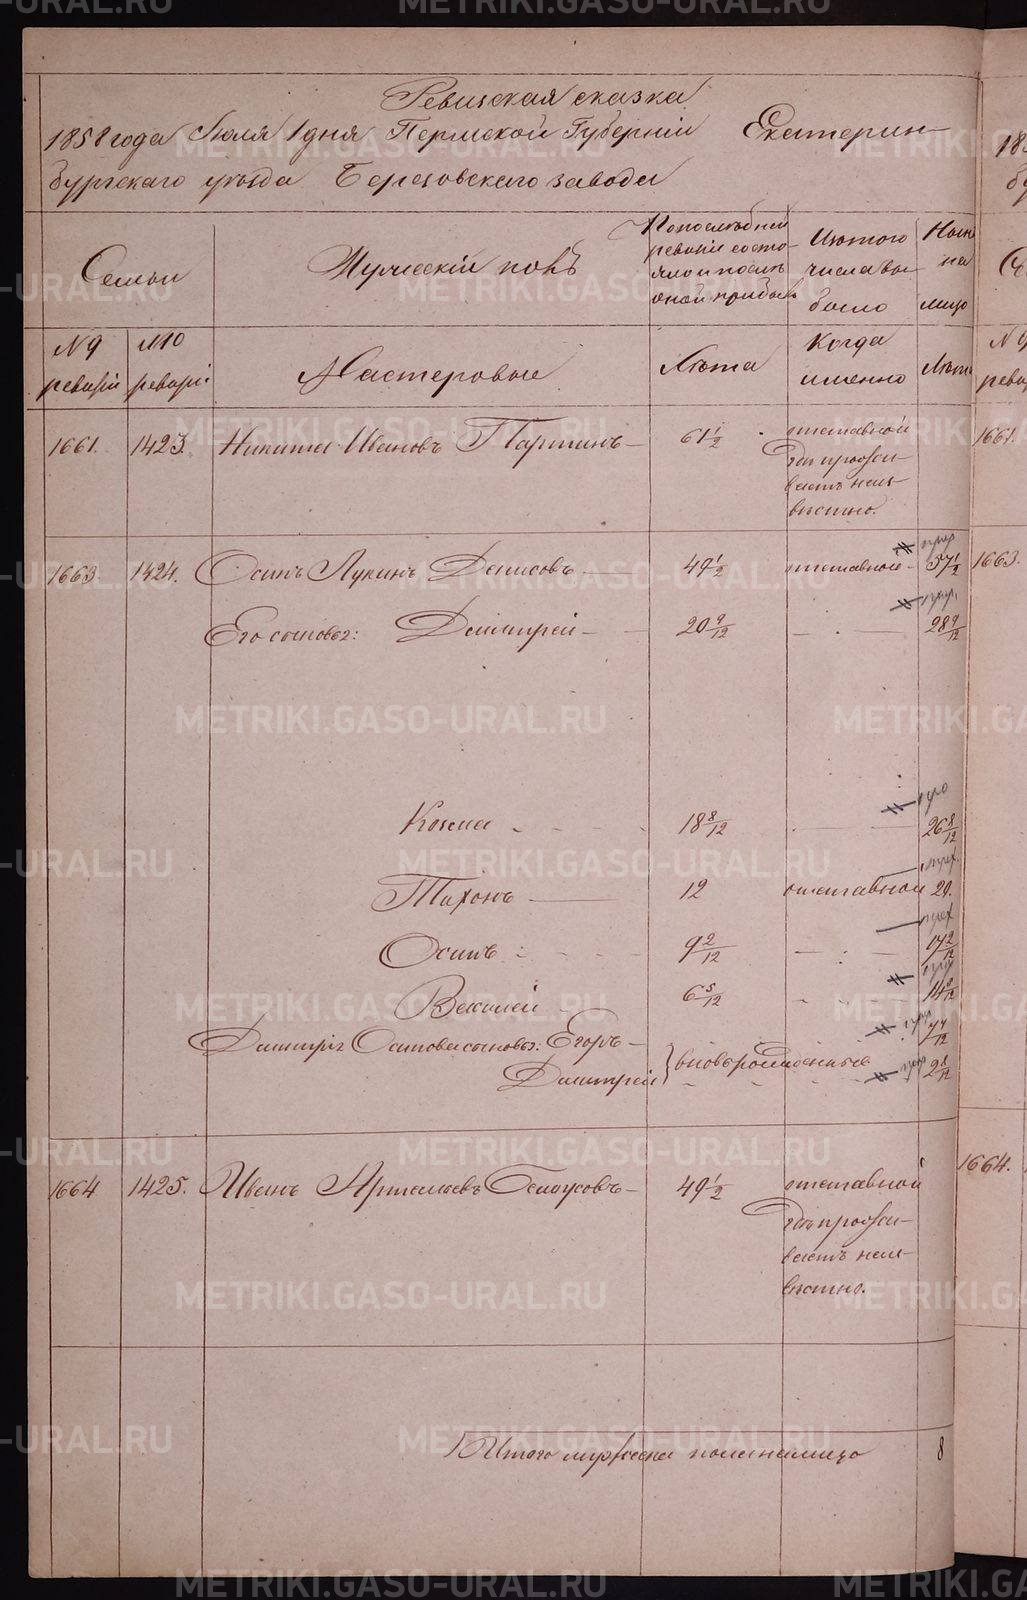 Ревизская сказка
1858 года Июля 1 дня Пермской Губернии Екатерин-
бургскаго уезда Березовскаго завода
Семьи
Мужескій полъ
По последней
ревизіи состо-
яло и после
оной прибыло
Из того
числа вы-
было
Ныне
на
лицо
№ 9
ревизіи
№ 10
ревизіи
Мастеровые
Лета
Когда
именно
Лета
1661. 1423. Никита Ивановъ Паршинъ 61 1/2 отставной
где прожи-
ваетъ неиз-
вестно.
1663 1424. Осипъ Лукинъ Денисовъ 49 1/2 отставной 57 1/2
Его сыновья: Дмитрей 20 9/12 28 9/12
Козма 18 8/12 26 8/12
Тихонъ 12 отставной 20.
Осипъ 9 2/12 17 2/12
Василей 6 5/12 14
Дмитрія Осипова сыновья: Егоръ
Дмитрей вновьрожденные
1664 1425. Иванъ Артемьевъ Белоусовъ 49 1/2 отставной
где прожи-
ваетъ неиз-
вестно.
Итого мужеска пола налицо 8
1661.
1663.
1664.
METRIKI.GASO-URAL.RU